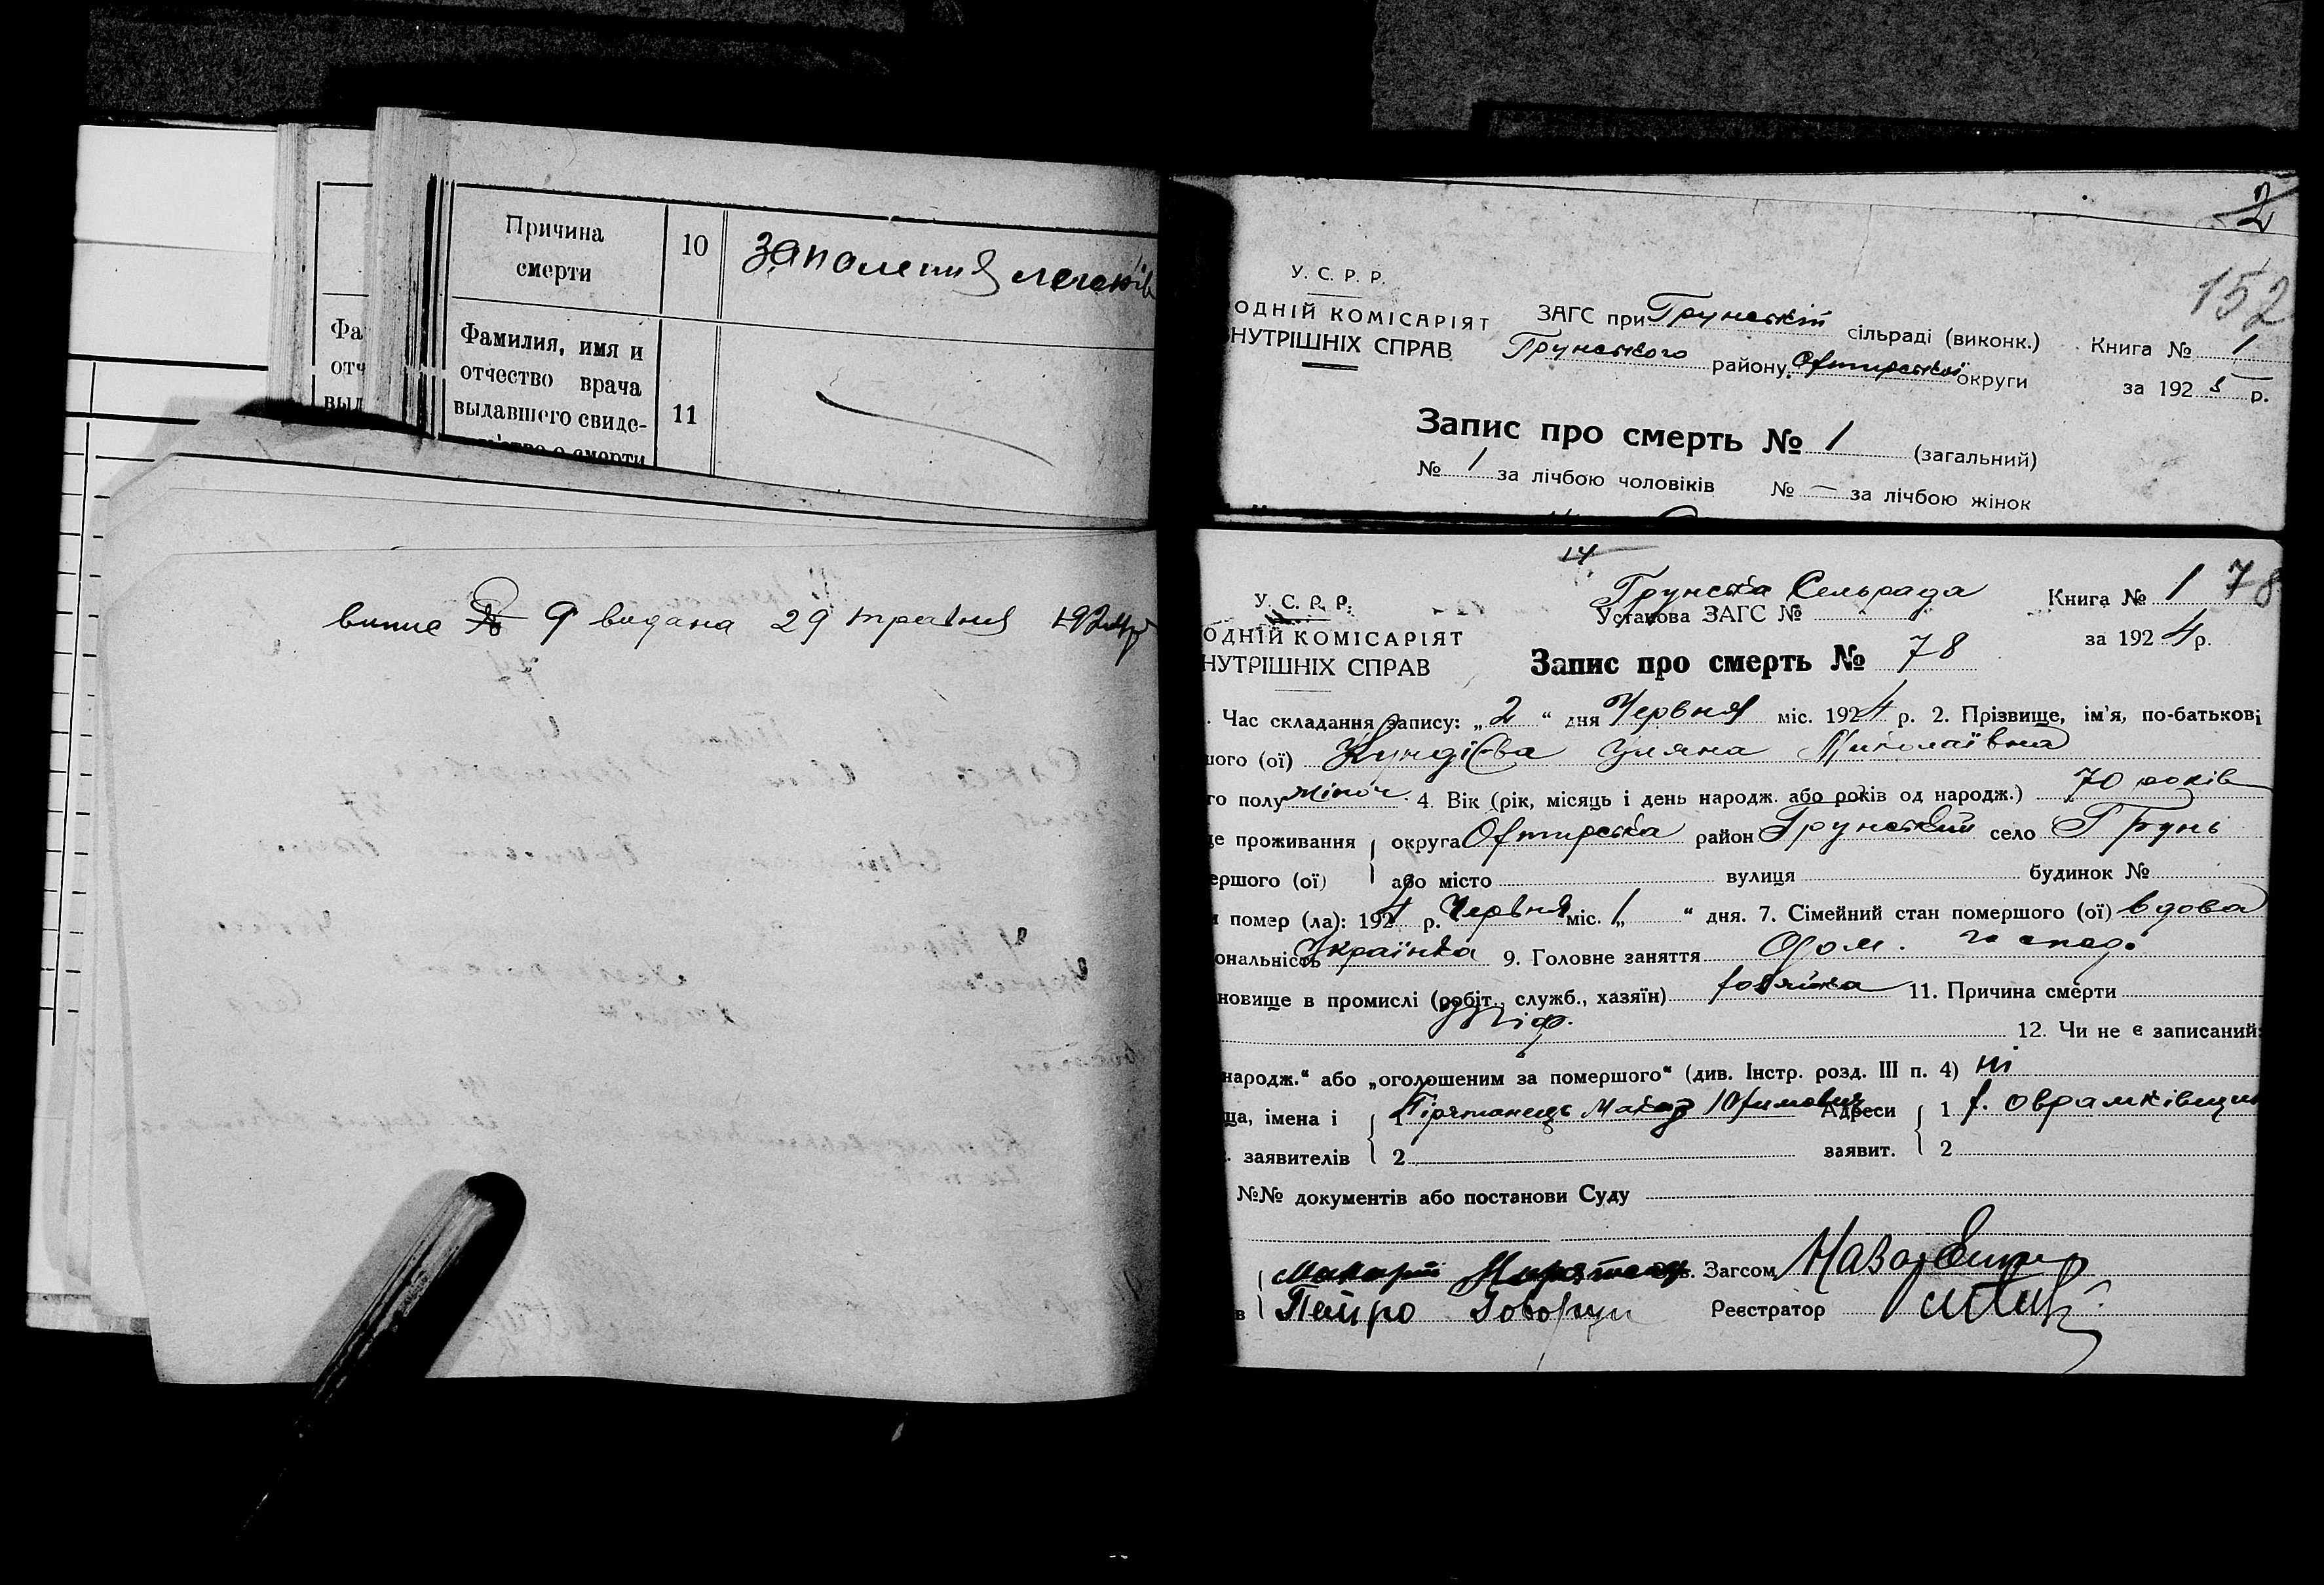 Причина
смерти
10
запаления легенів
Фа
отч
выд
Фамилия, имя и
отчество врача
выдавшего свиде-
о смерти
11
випис № 9 видана 29 травня 1924р
2
152
У. С. Р. Р.
ОДНІЙ КОМІСАРІЯТ
НУТРІШНІХ СПРАВ
ЗАГС при Грунській сільраді (виконк.)
Грунського району Охтирської округи
Книга № 1
за 1925 р.
Запис про смерть № 1 (загальний)
№ 1 за лічбою чоловіків № — за лічбою жінок
14
У. С. Р. Р.
ОДНІЙ КОМІСАРІЯТ
НУТРІШНІХ СПРАВ
Грунська Сельрада
Установа ЗАГС №
Книга № 1 78
за 1924 р.
Запис про смерть № 78
. Час складання запису: „2“ дня Червня міс. 1924 р. 2. Прізвище, ім'я, по-батькові
шого (ої) Уляна Миколаївна
го полу жіноч. 4. Вік (рік, місяць і день народж. або років од народж.) 70 років
це проживання округа Охтирська район Грунський село Грунь
ершого (ої) або місто вулиця будинок №
и помер (ла): 1924 р. Червня міс. „1“ дня. 7. Сімейний стан помершого (ої) вдова
ональність Українка 9. Головне заняття Дом. господ.
новище в промислі (робіт., служб., хазяїн) 11. Причина смерти
тіф. 12. Чи не є записаний:
народж.“ або „оголошеним за помершого“ (див. Інстр. розд. III п. 4) ні
ща, імена і 1 Пірятенець Макар Юхимович Адреси 1 х.
. заявителів 2 заявит. 2
№№ документів або постанови Суду
Макарій Зав. Загсом
в Петро Реєстратор